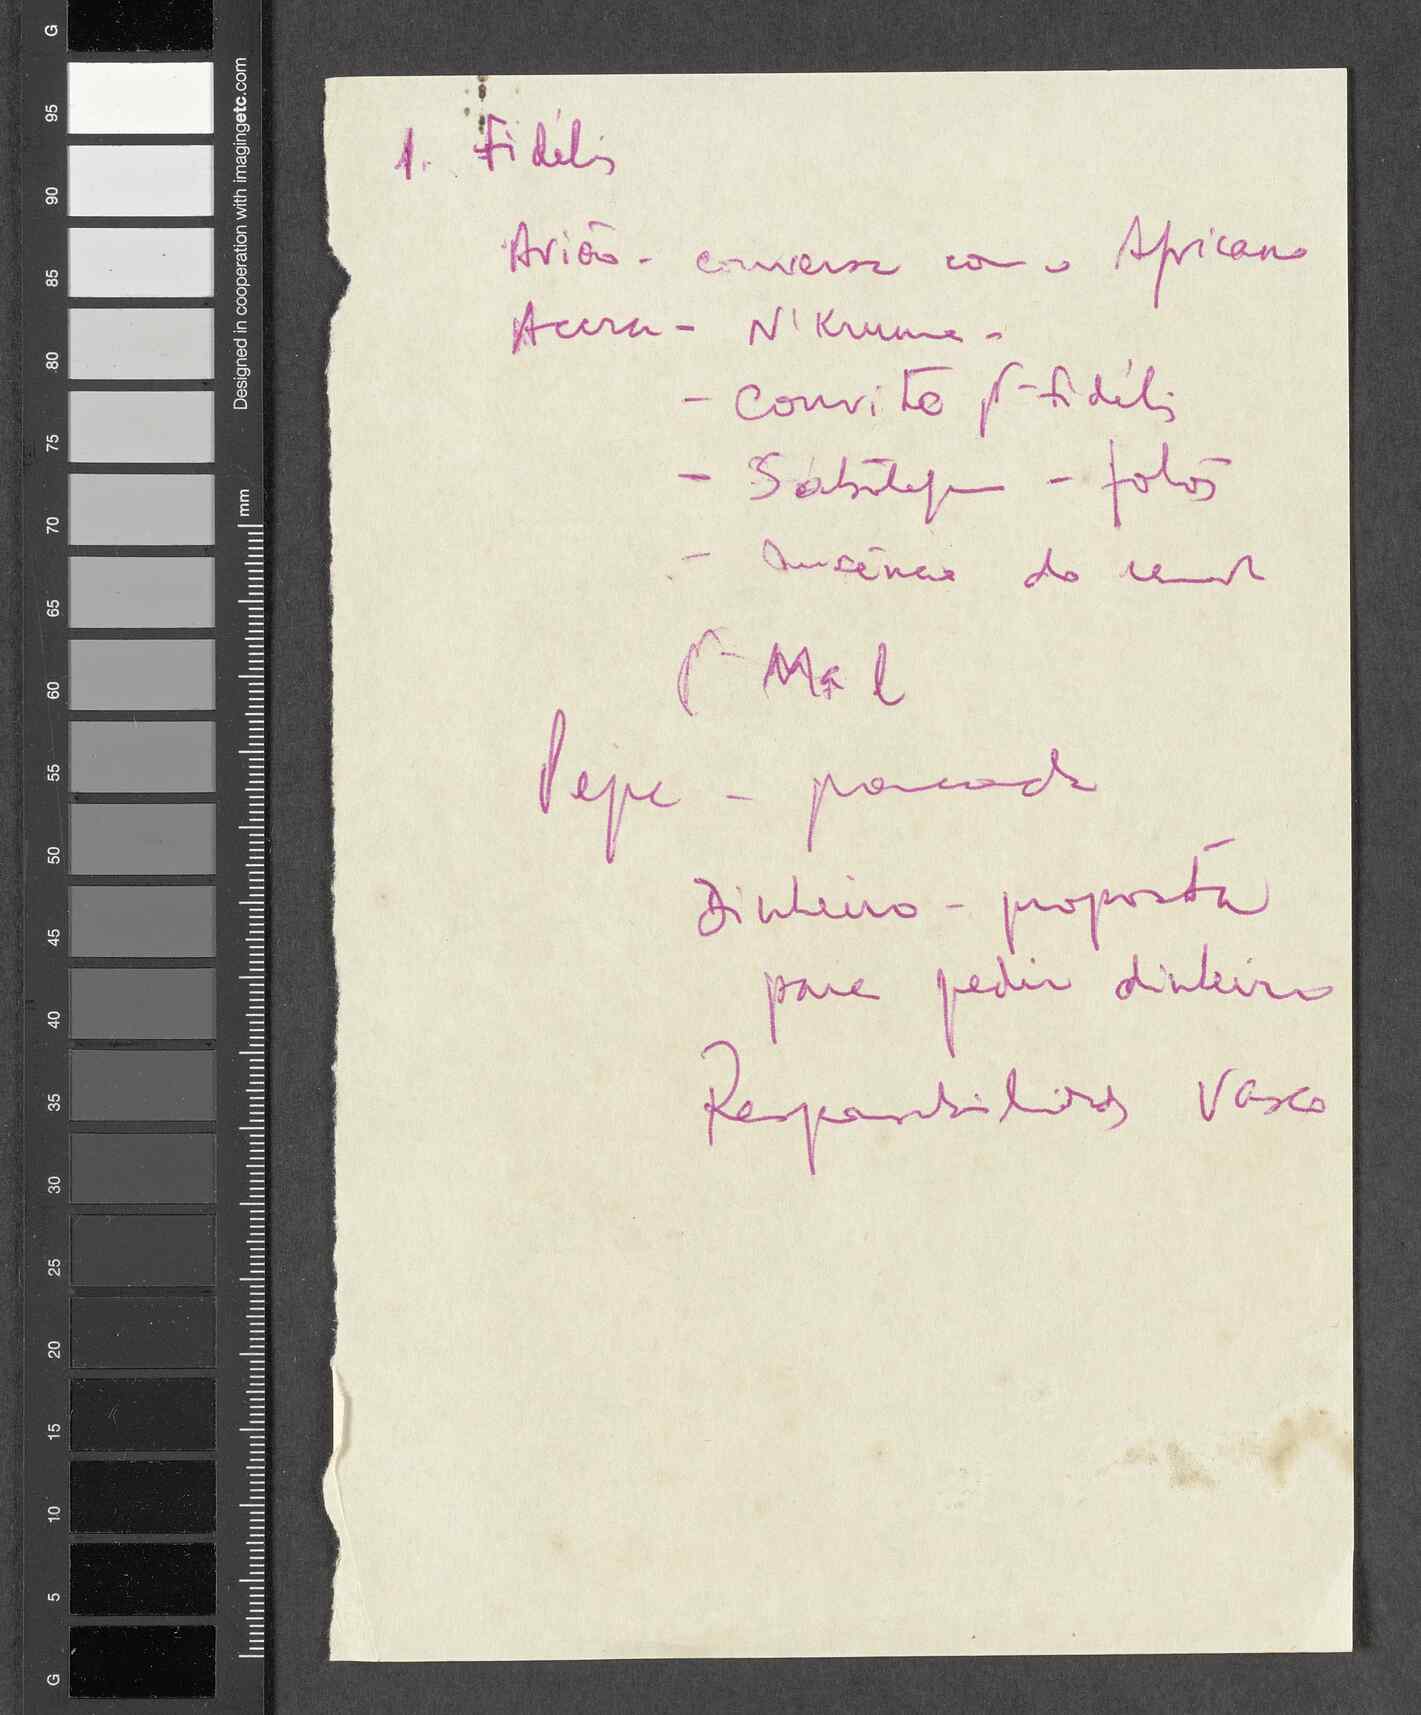 G
95
90
85
80
75
70
65
60
55
50
45
40
35
30
25
20
15
10
5
G
Designed in cooperation with imagingetc.com
mm
1. Fidélis
Avião - conversa com o Africano
Accra - N'Kruma -
- Convite p- Fidélis
- Sabotagem - fotos
- Ausência do
p-
Pepe - pancada
Dinheiro - proposta
para pedir dinheiro
Responsabilidades Vasco